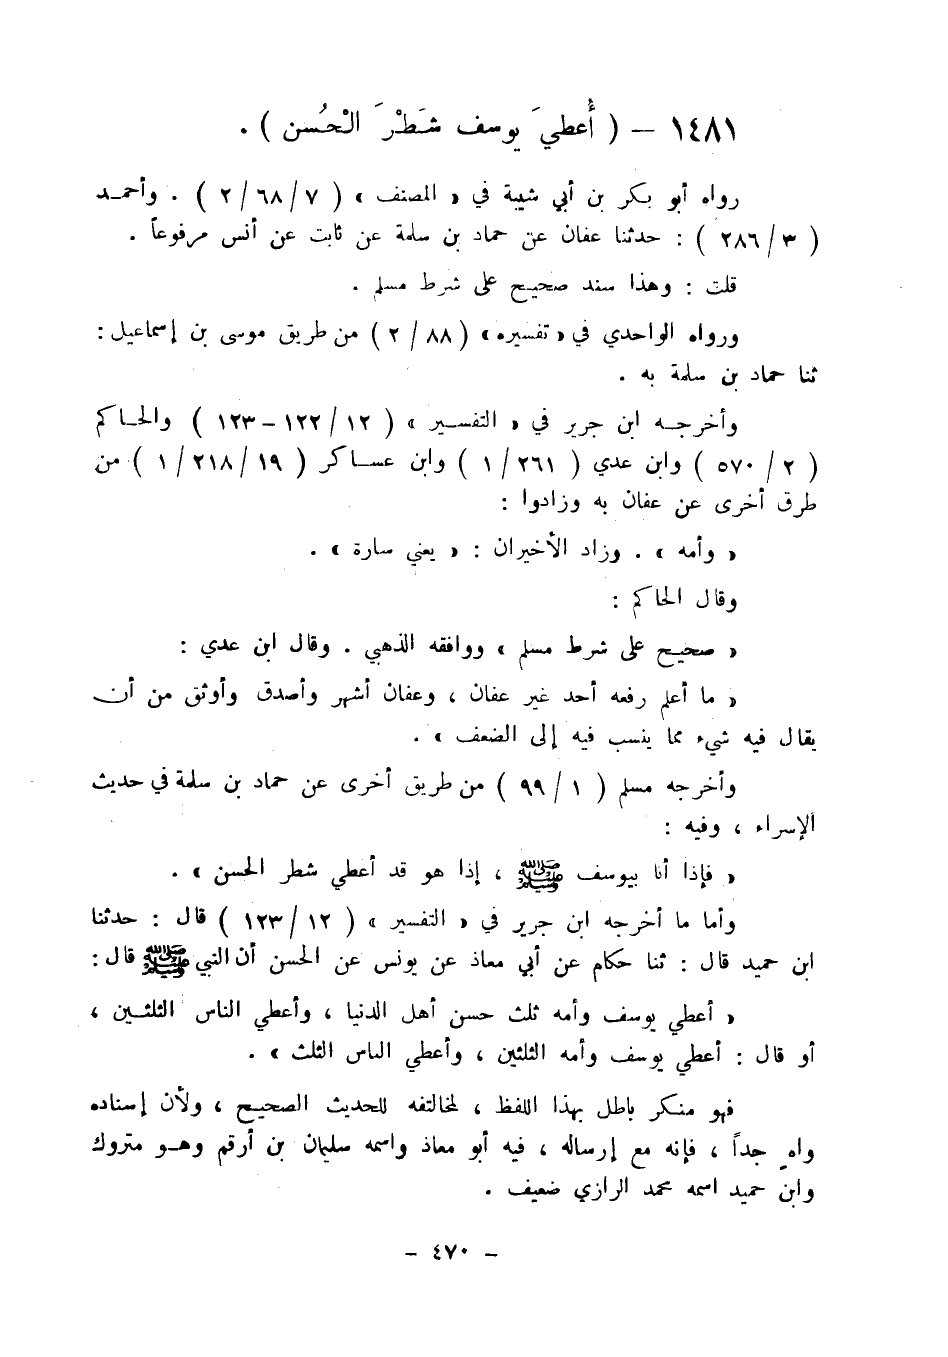 ١٤٨١ – ( أُعطيَ يوسف شَطْرَ الْحُسن ) .
رواه أبو بكر بن أبي شيبة في « المصنف » ( ٧ / ٦٨ / ٢ ) . وأحمد
( ٣ / ٢٨٦ ) : حدثنا عفان عن حماد بن سلمة عن ثابت عن أنس مرفوعاً .
قلت : وهذا سند صحيح على شرط مسلم .
ورواه الواحدي في « تفسيره » ( ٨٨ / ٢ ) من طريق موسى بن إسماعيل :
ثنا حماد بن سلمة به .
وأخرجه ابن جرير في « التفسير » ( ١٢ / ١٢٢ – ١٢٣ ) والحاكم
( ٢ / ٥٧٠ ) وابن عدي ( ٢٦١ / ١ ) وابن عساكر ( ١٩ / ٢١٨ / ١ ) من
طرق أخرى عن عفان به وزادوا :
« وأمه » . وزاد الأخيران : « يعني سارة » .
وقال الحاكم :
« صحيح على شرط مسلم » ووافقه الذهبي . وقال ابن عدي :
« ما أعلم رفعه أحد غير عفان ، وعفان أشهر وأصدق وأوثق من أن
يقال فيه شيء مما ينسب فيه إلى الضعف » .
وأخرجه مسلم ( ١ / ٩٩ ) من طريق أخرى عن حماد بن سلمة في حديث
الإسراء ، وفيه :
« فإذا أنا بيوسف ﷺ ، إذا هو قد أعطي شطر الحسن » .
وأما ما أخرجه ابن جرير في « التفسير » ( ١٢ / ١٢٣ ) قال : حدثنا
ابن حميد قال : ثنا حكام عن أبي معاذ عن يونس عن الحسن أن النبي ﷺ قال :
« أعطي يوسف وأمه ثلث حسن أهل الدنيا ، وأعطي الناس الثلثين ،
أو قال : أعطي يوسف وأمه الثلثين ، وأعطي الناس الثلث » .
فهو منكر باطل بهذا اللفظ ، لمخالفته للحديث الصحيح ، ولأن إسناده
واهٍ جداً ، فإنه مع إرساله ، فيه أبو معاذ واسمه سليمان بن أرقم وهو متروك
وابن حميد اسمه محمد الرازي ضعيف .
– ٤٧٠ –